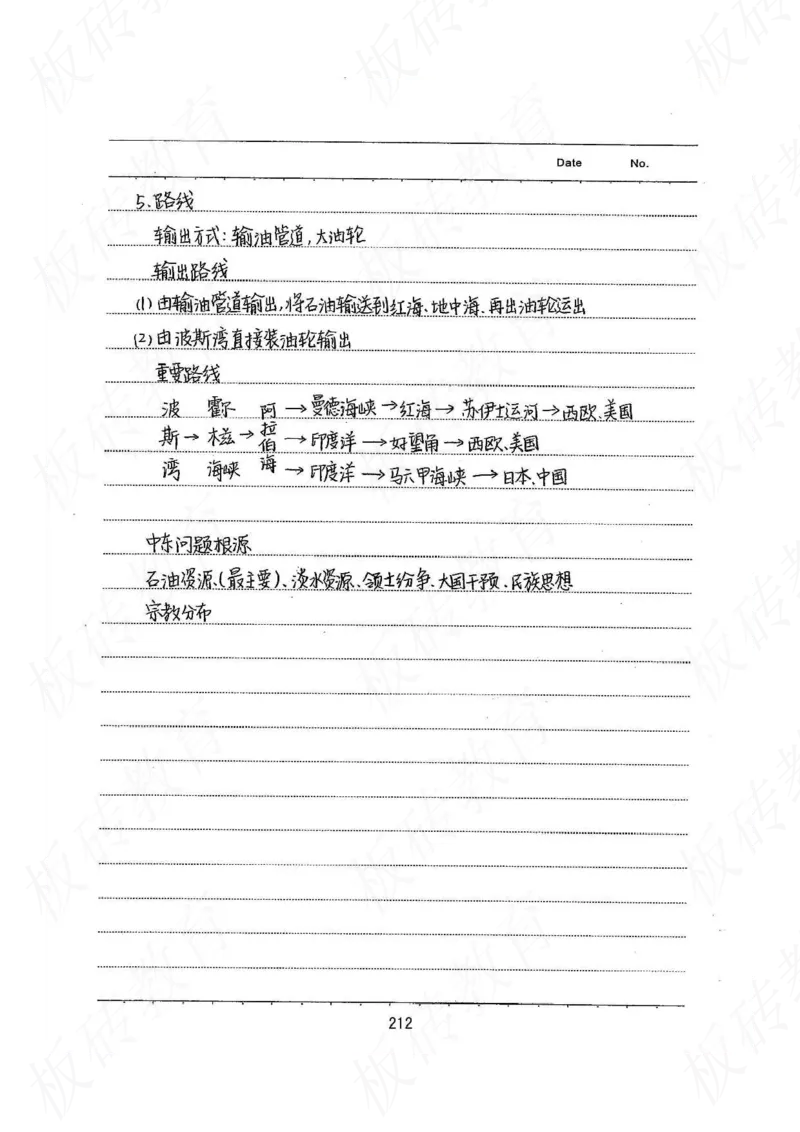 Date No.
5.路线
输出方式:输油管道,大油轮
输出路线
(1)由输油管道输出,将石油输送到红海、地中海、再出油轮运出
(2)由波斯湾直接装油轮输出
重要路线
波 霍尔 阿→曼德海峡→红海→苏伊士运河→西欧、美国
斯→木兹→拉伯→印度洋→好望角→西欧、美国
湾 海峡 海→印度洋→马六甲海峡→日本、中国
中东问题根源
石油资源、(最主要)、淡水资源、领土纷争、大国干预、民族思想
宗教分布
212
板砖教育